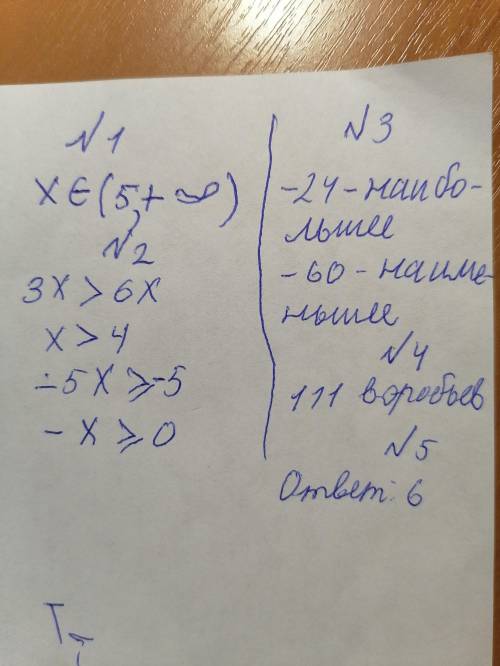 №1
x∈(5,+∞)
№2
3x>6x
x>4
-5x⩾-5
-x⩾0
№3
-24-наибо-
льшее
-60-наиме-
ньшее
№4
111 воробьев
№5
Ответ: 6